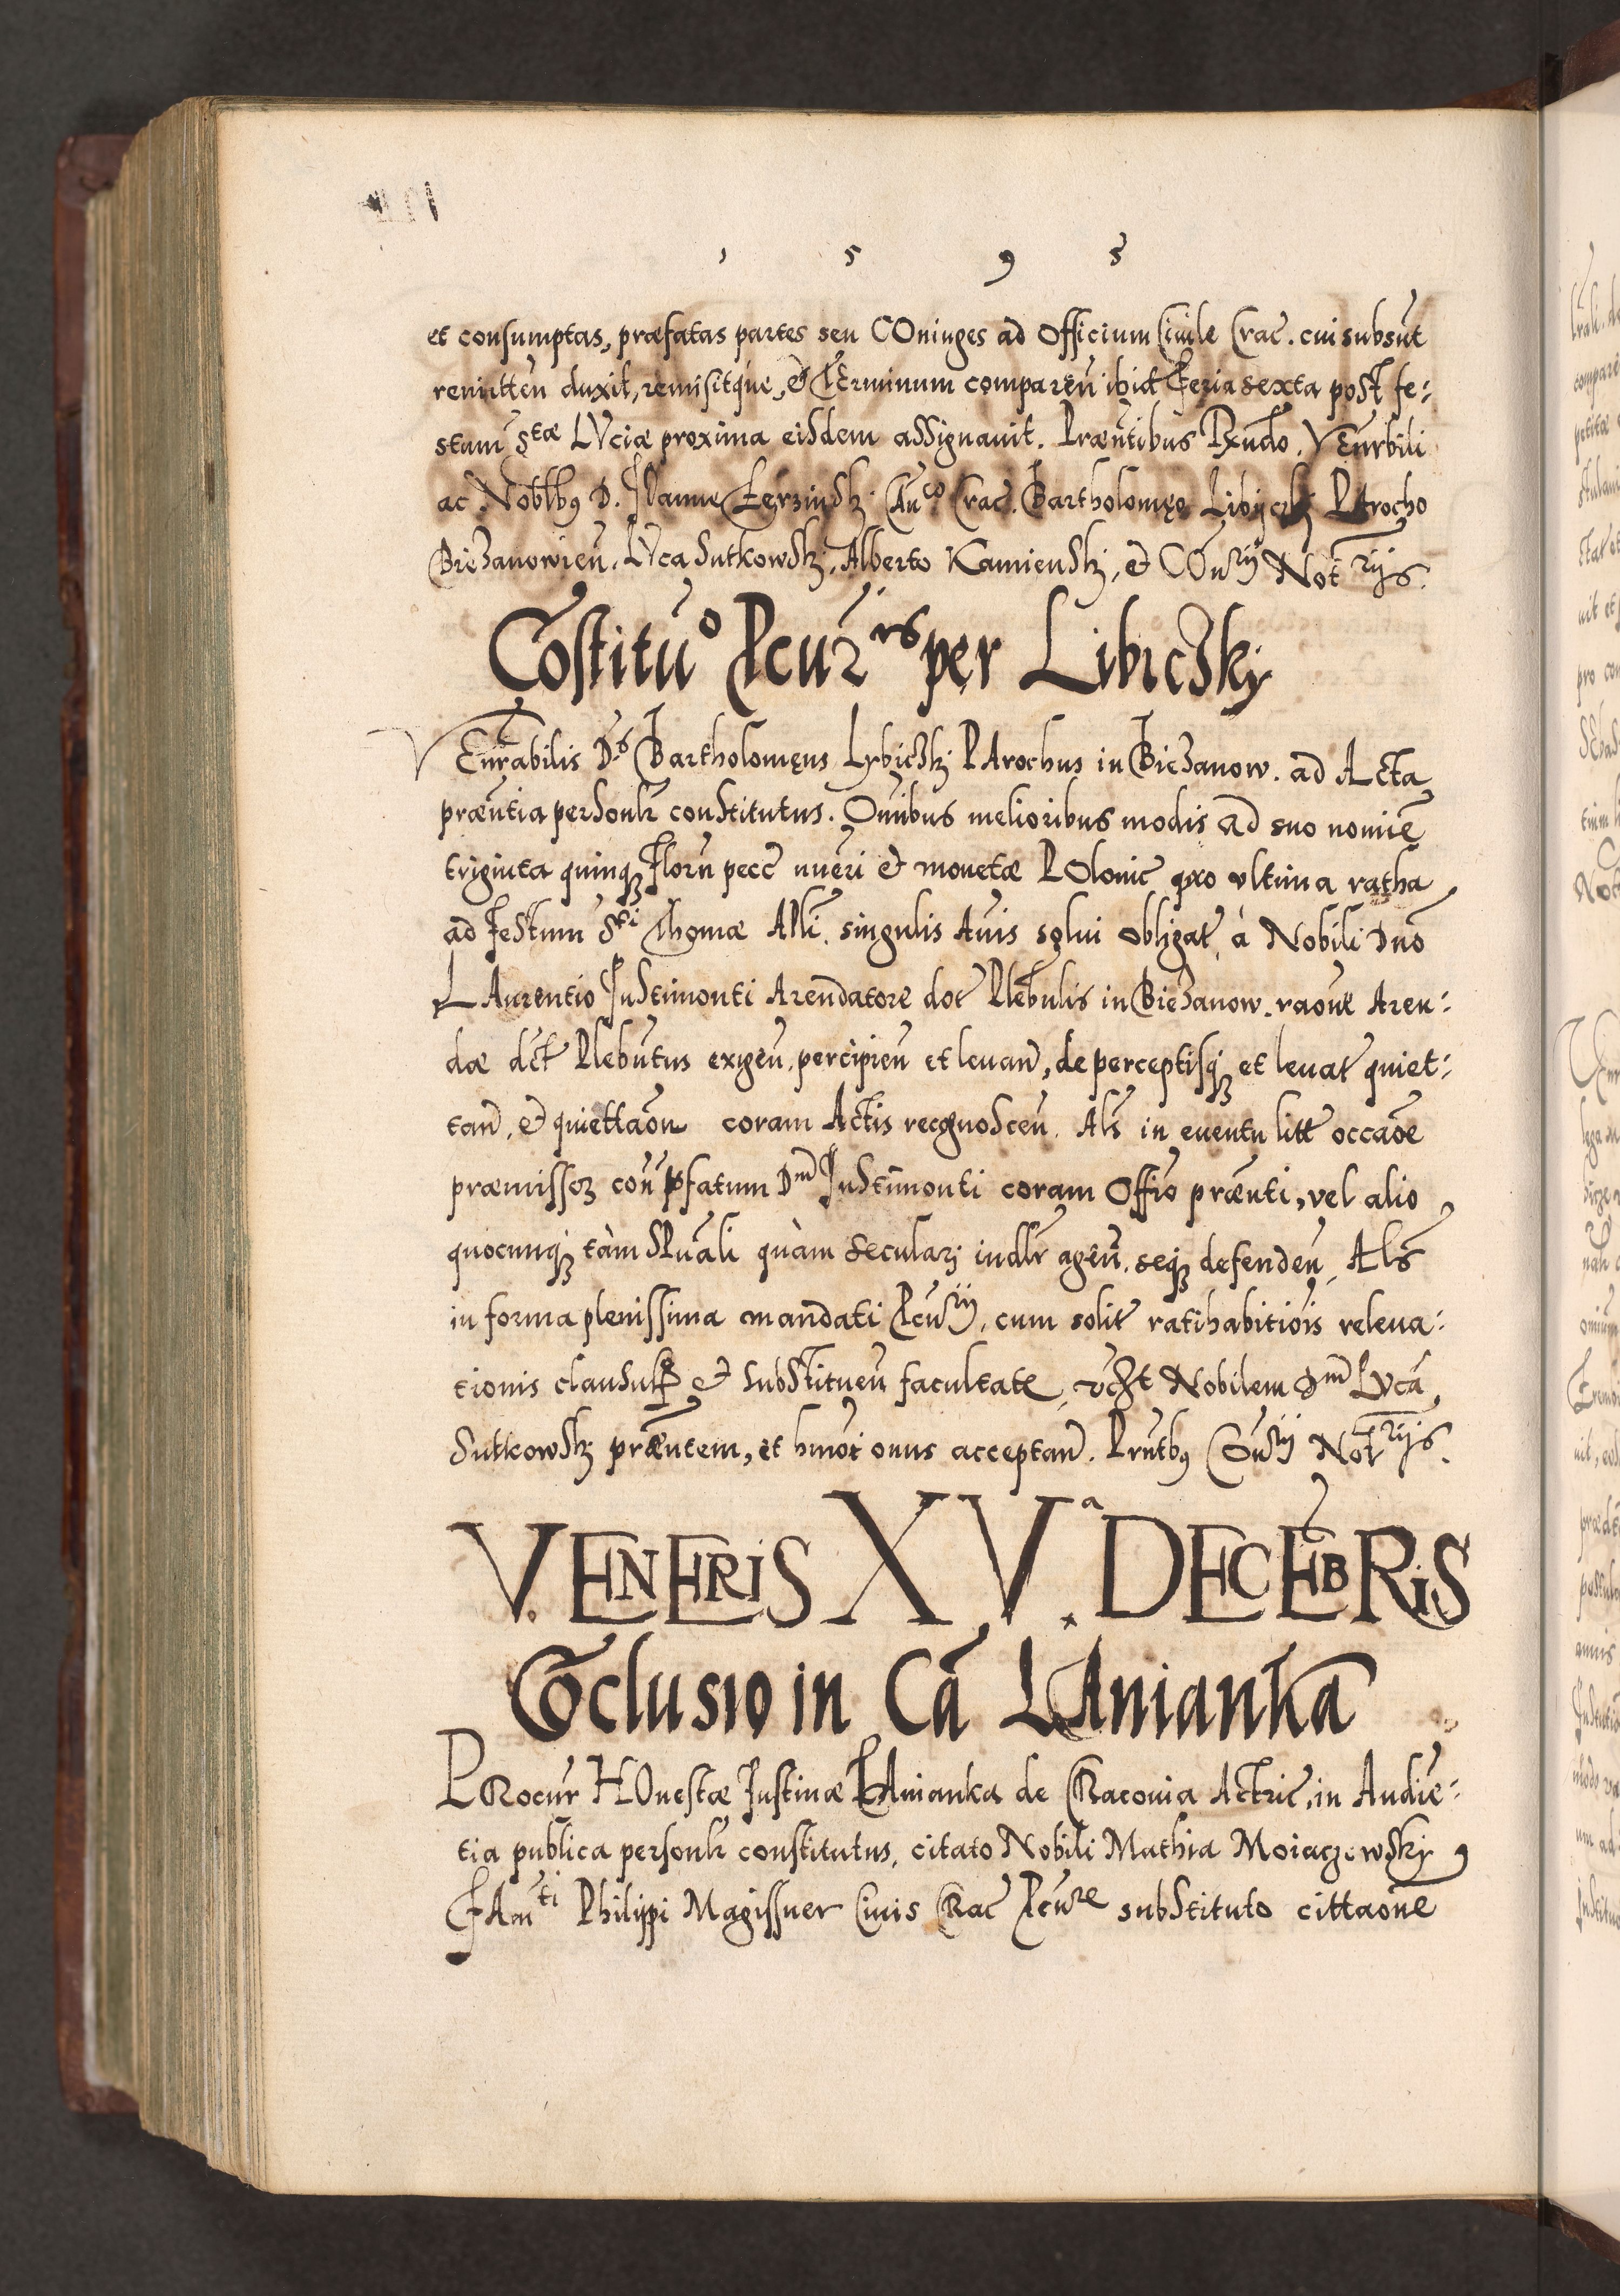 1 5 9 5
et consumptas, præfatas partes seu COniuges ad Officium Ciuile Crac. cui subsūt
remitten̄ duxit, remisitque, et TErminum comparen̄ ibid̄ Feria sexta post fe:
stum Stæ LVciæ proxima eisdem assignauit. Præn̄tibus Rn̄do. VEn̄rbili
ac Noblbꝫ D. Can̄co Crac. Bartholomęo Libiczkj PArocho
Bieʒanowien̄. LVca Sutkowskj, Alberto Kamienskj, et COn̄rij Not̄rijs.
Cōstitūo Pcur̄rs per Libicʒki
VEn̄rabilis Ds Bartholomęus Lybicʒkj PArochus in Bieʒanow. ad Acta
præn̄tia personl̄r constitutus. Om̄ibus melioribus modis ad suo nomiē
triginta quinqꝫ Floren̄ pecc̄ nūeri et monetæ POlonic̄ pro vltima ratha
ad Festum Sti Thomæ Apl̄i. singulis An̄is solui obligat̄, à Nobili Dn̄o
LAurentio Justimonti Arendatore dot̄ Plebn̄lis in Bieʒanow. raōne Aren:
dæ dct̄ Plebn̄tus exigen̄. percipien̄ et leuan̄, de perceptisqꝫ et leuat̄ quiet:
tan̄. et quiettaōn̄ coram Actis recgnoscen̄. Als̄ in euentu litt̄ occaōe
præmissoꝝ con̄ pfatum Dm̄ Justimonti coram Offi͞o præn̄ti, vel alio
quocunqꝫ tàm SPuāli quàm secularj iudl̄r agen̄. seqꝫ defenden̄, Als̄
in forma plenissima mandati Pcur̄rij. cum solit̄ ratihabitiois̄ releua:
tionis clausul̄ et substituen̄ facultate, Nobilem Dm̄ LVcā
Sutkowskj præn̄tem, et hmōi onus acceptan̄. Prn̄tbꝫ COn̄rij Not̄rijs.
VENERIS XVa DECEBRIS
Cōclusio in Cā LAnianka
PRocur̄ HOnestæ Justinæ LAnianka de CRacouia Actric̄, in Audiē:
tia publica personl̄r constitutus, citato Nobili Mathia Moiaczowskj
FAmti Philippi Magissner Ciuis CRac̄ Pcur̄re substituto cittaōne